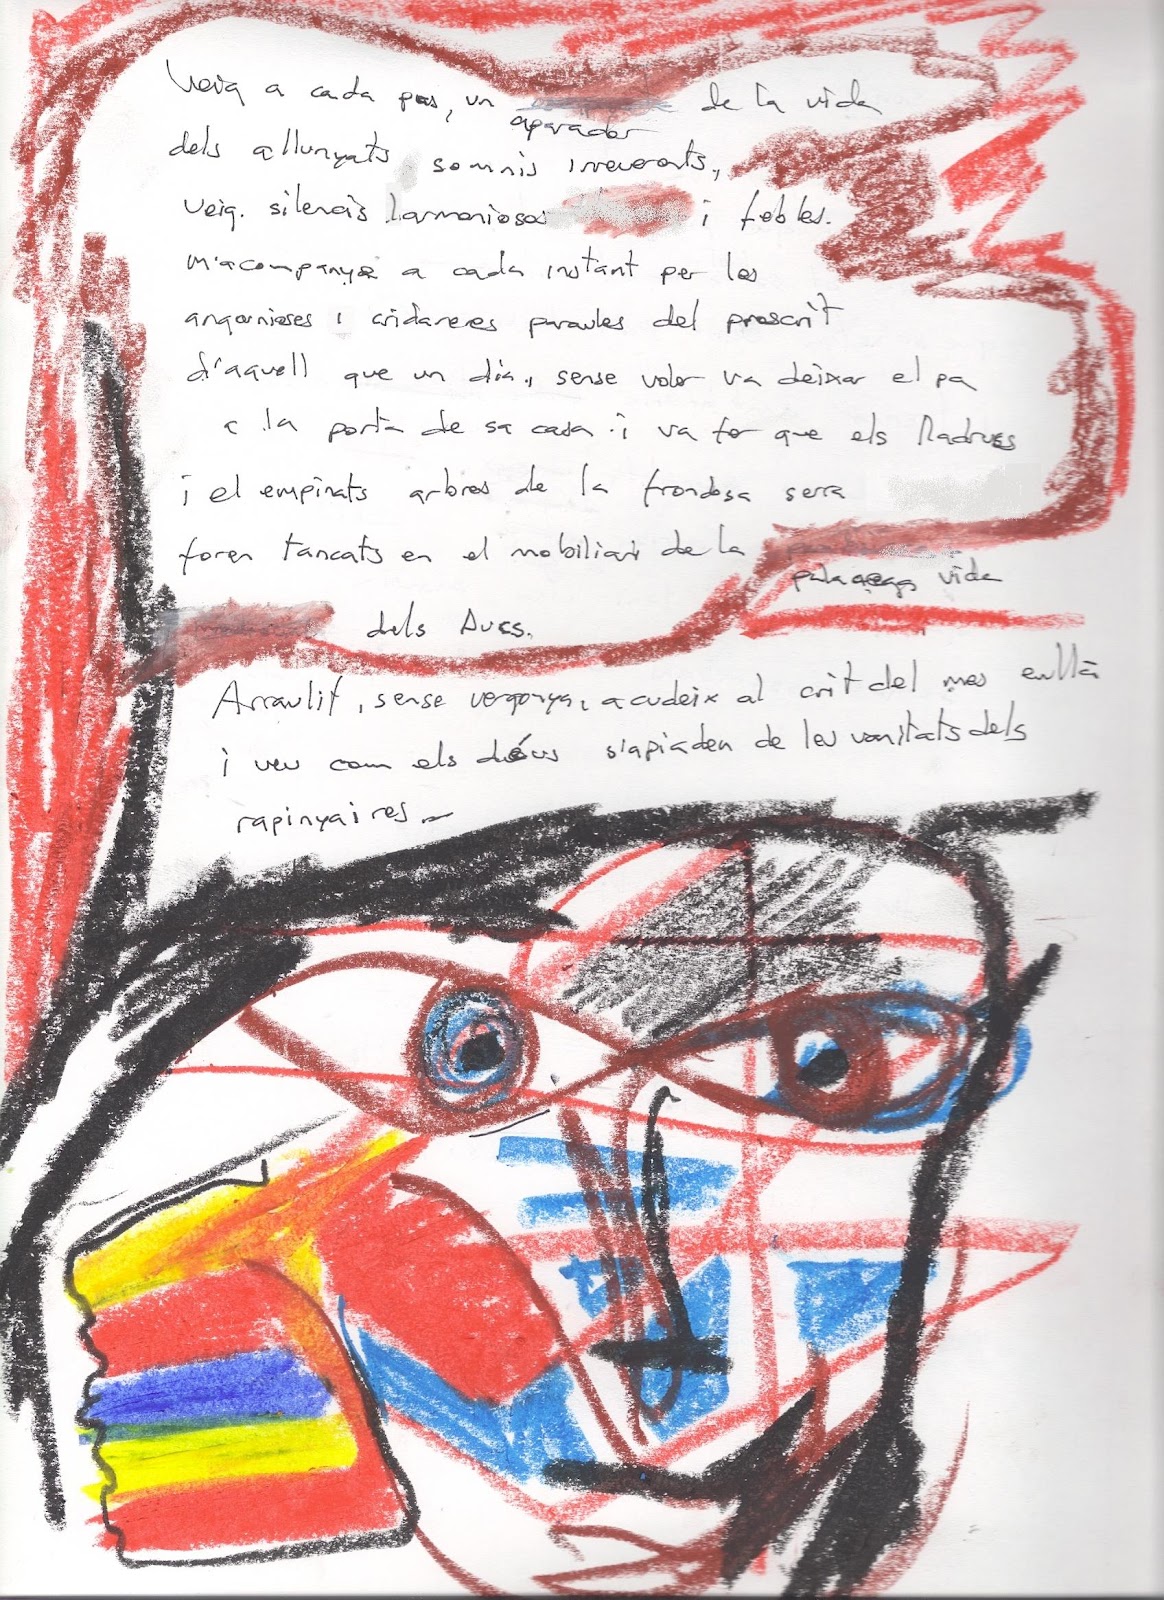 Veig a cada pas, un aparador de la vida
dels allunyats somnis irreverents,
veig silencis harmoniosos i febles.
m'acompanya a cada instant per les
angoinioses i cridaneres paraules del proscrit
d'aquell que un dia, sense voler va deixar el pa
a la porta de sa casa i va fer que els lladres
i el empinats arbres de la frondosa serra
foren tancats en el mobiliari de la vida
dels Avis.
Arraulit, sense vergonya, acudeix al crit del mes enllà
i veu com els déus s'apiaden de les vanitats dels
rapinyaires